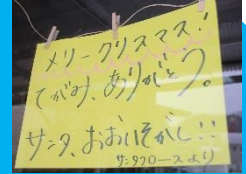 メリークリスマス!
てがみ、ありがとう。
サンタ、おおいそがし!!
サンタクロースより